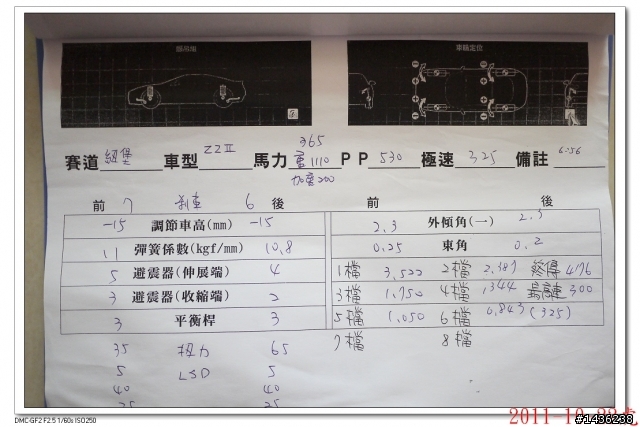 懸吊組 車輪定位
365
賽道 紐堡 車型 ZZII 馬力 重1110 PP 530 極速 325 備註 6:56
加重200
前 7 剎車 6 後 前 後
-15 調節車高(mm) -15 2.3 外傾角(一) 2.3
11 彈簧係數(kgf/mm) 10.8 0.25 束角 0.2
5 避震器(伸展端) 4 1檔 3,522 2檔 2.387 終傳 4.176
3 避震器(收縮端) 2 3檔 1,750 4檔 1,344 最高速 300
3 平衡桿 3 5檔 1,050 6檔 0,843 (325)
35 扭力 65 7檔 8檔
5 LSD 5
40 40
25 25
DMC-GF2 F2.5 1/60s ISO250
#1436238